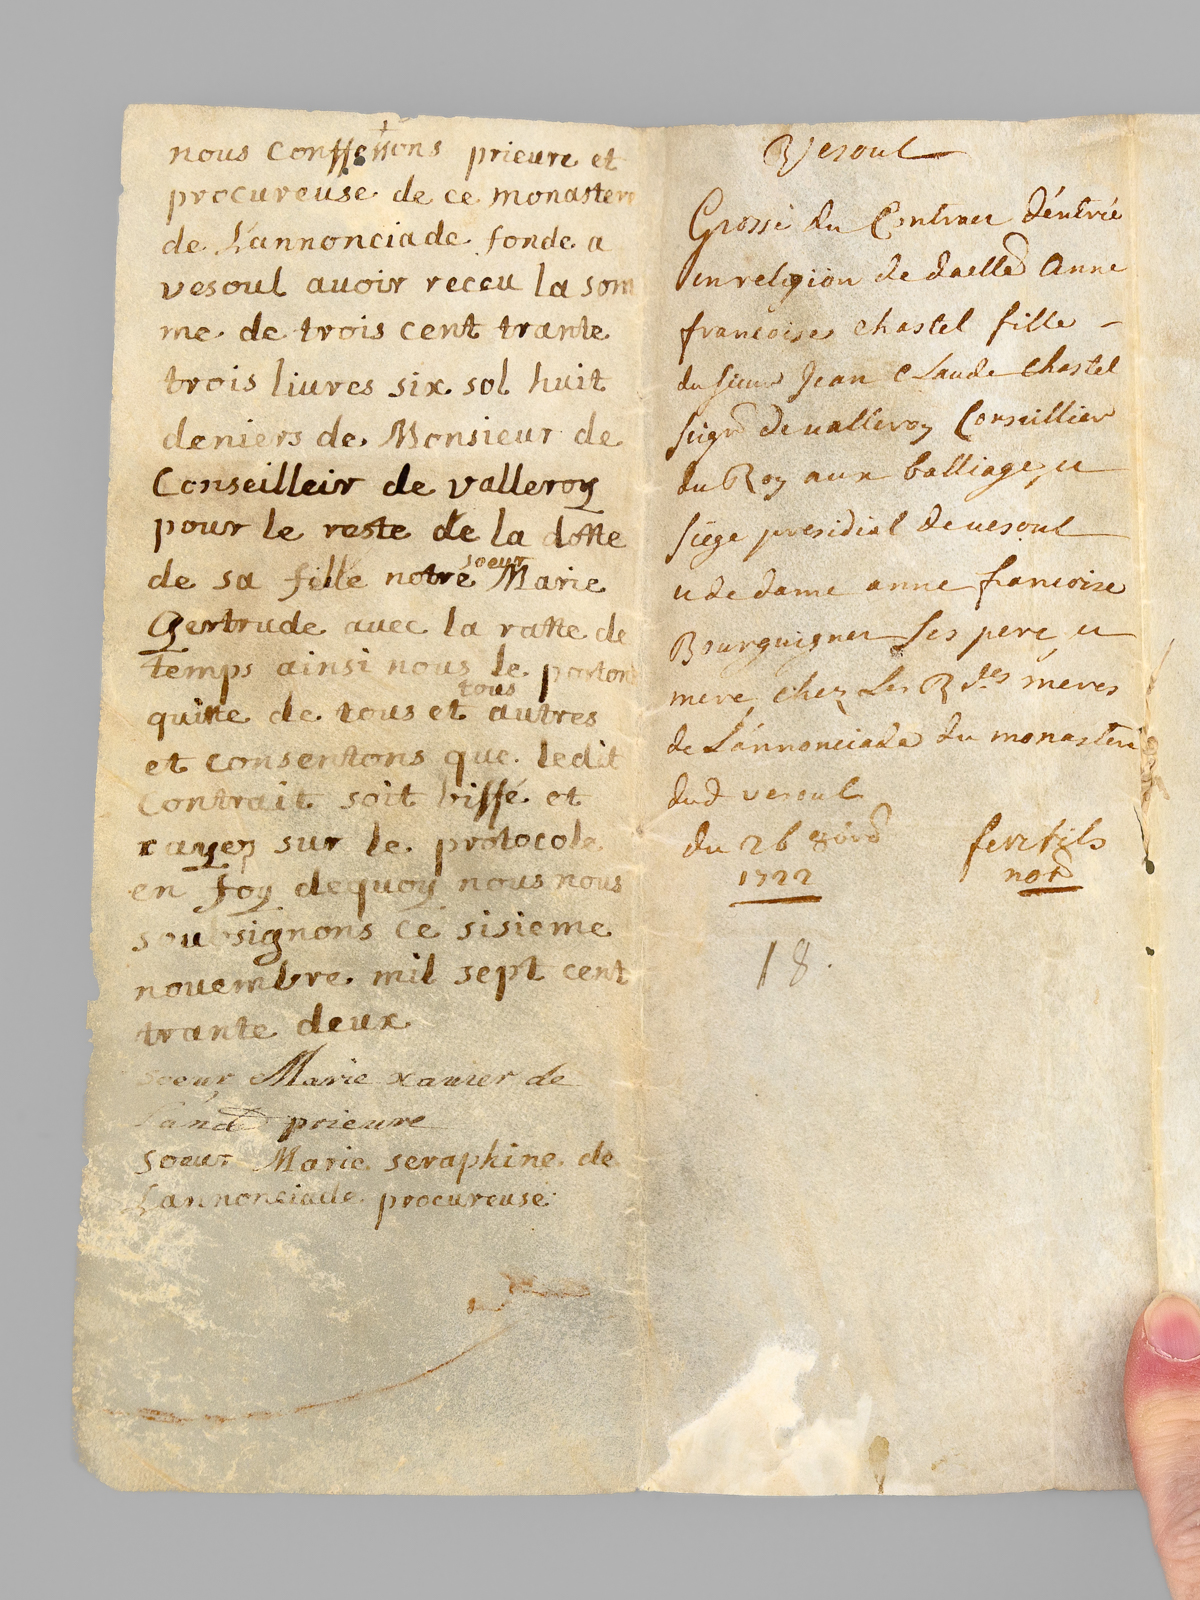 nous Conffessons prieure et
procureuse de ce monastere
de L'annonciade fonde a
vesoul auoir receu la som
me de trois cent trante
trois liures six sol huit
deniers de Monsieur de
Conseilleir de valleroy
pour le reste de la dotte
de sa fille notre soeur Marie
Gertrude auec la ratte de
temps ainsi nous le portons
quitte de tous et tous autres
et consentons que ledit
Contrait soit biffé et
rayez sur le protocole
en foy dequoy nous nous
soubsignons ce sisieme
nouembre mil sept cent
trante deux
soeur Marie xauier de
prieure
soeur Marie seraphine de
Lannonciade procureuse
Vesoul
Grosse du Contract d'éntrée
en religion de daelle Anne
francoise chastel fille
du sieur Jean Claude Chastel
seigr de ualleroy Conseillier
du Roy aux balliage et
siége presidial de uesoul
et de dame anne francoise
Bourguignet ses pere et
mere chez Les Rdes meres
de Lánnonciade du monastere
dud vesoul
du 26 8bre
1722
not
18.